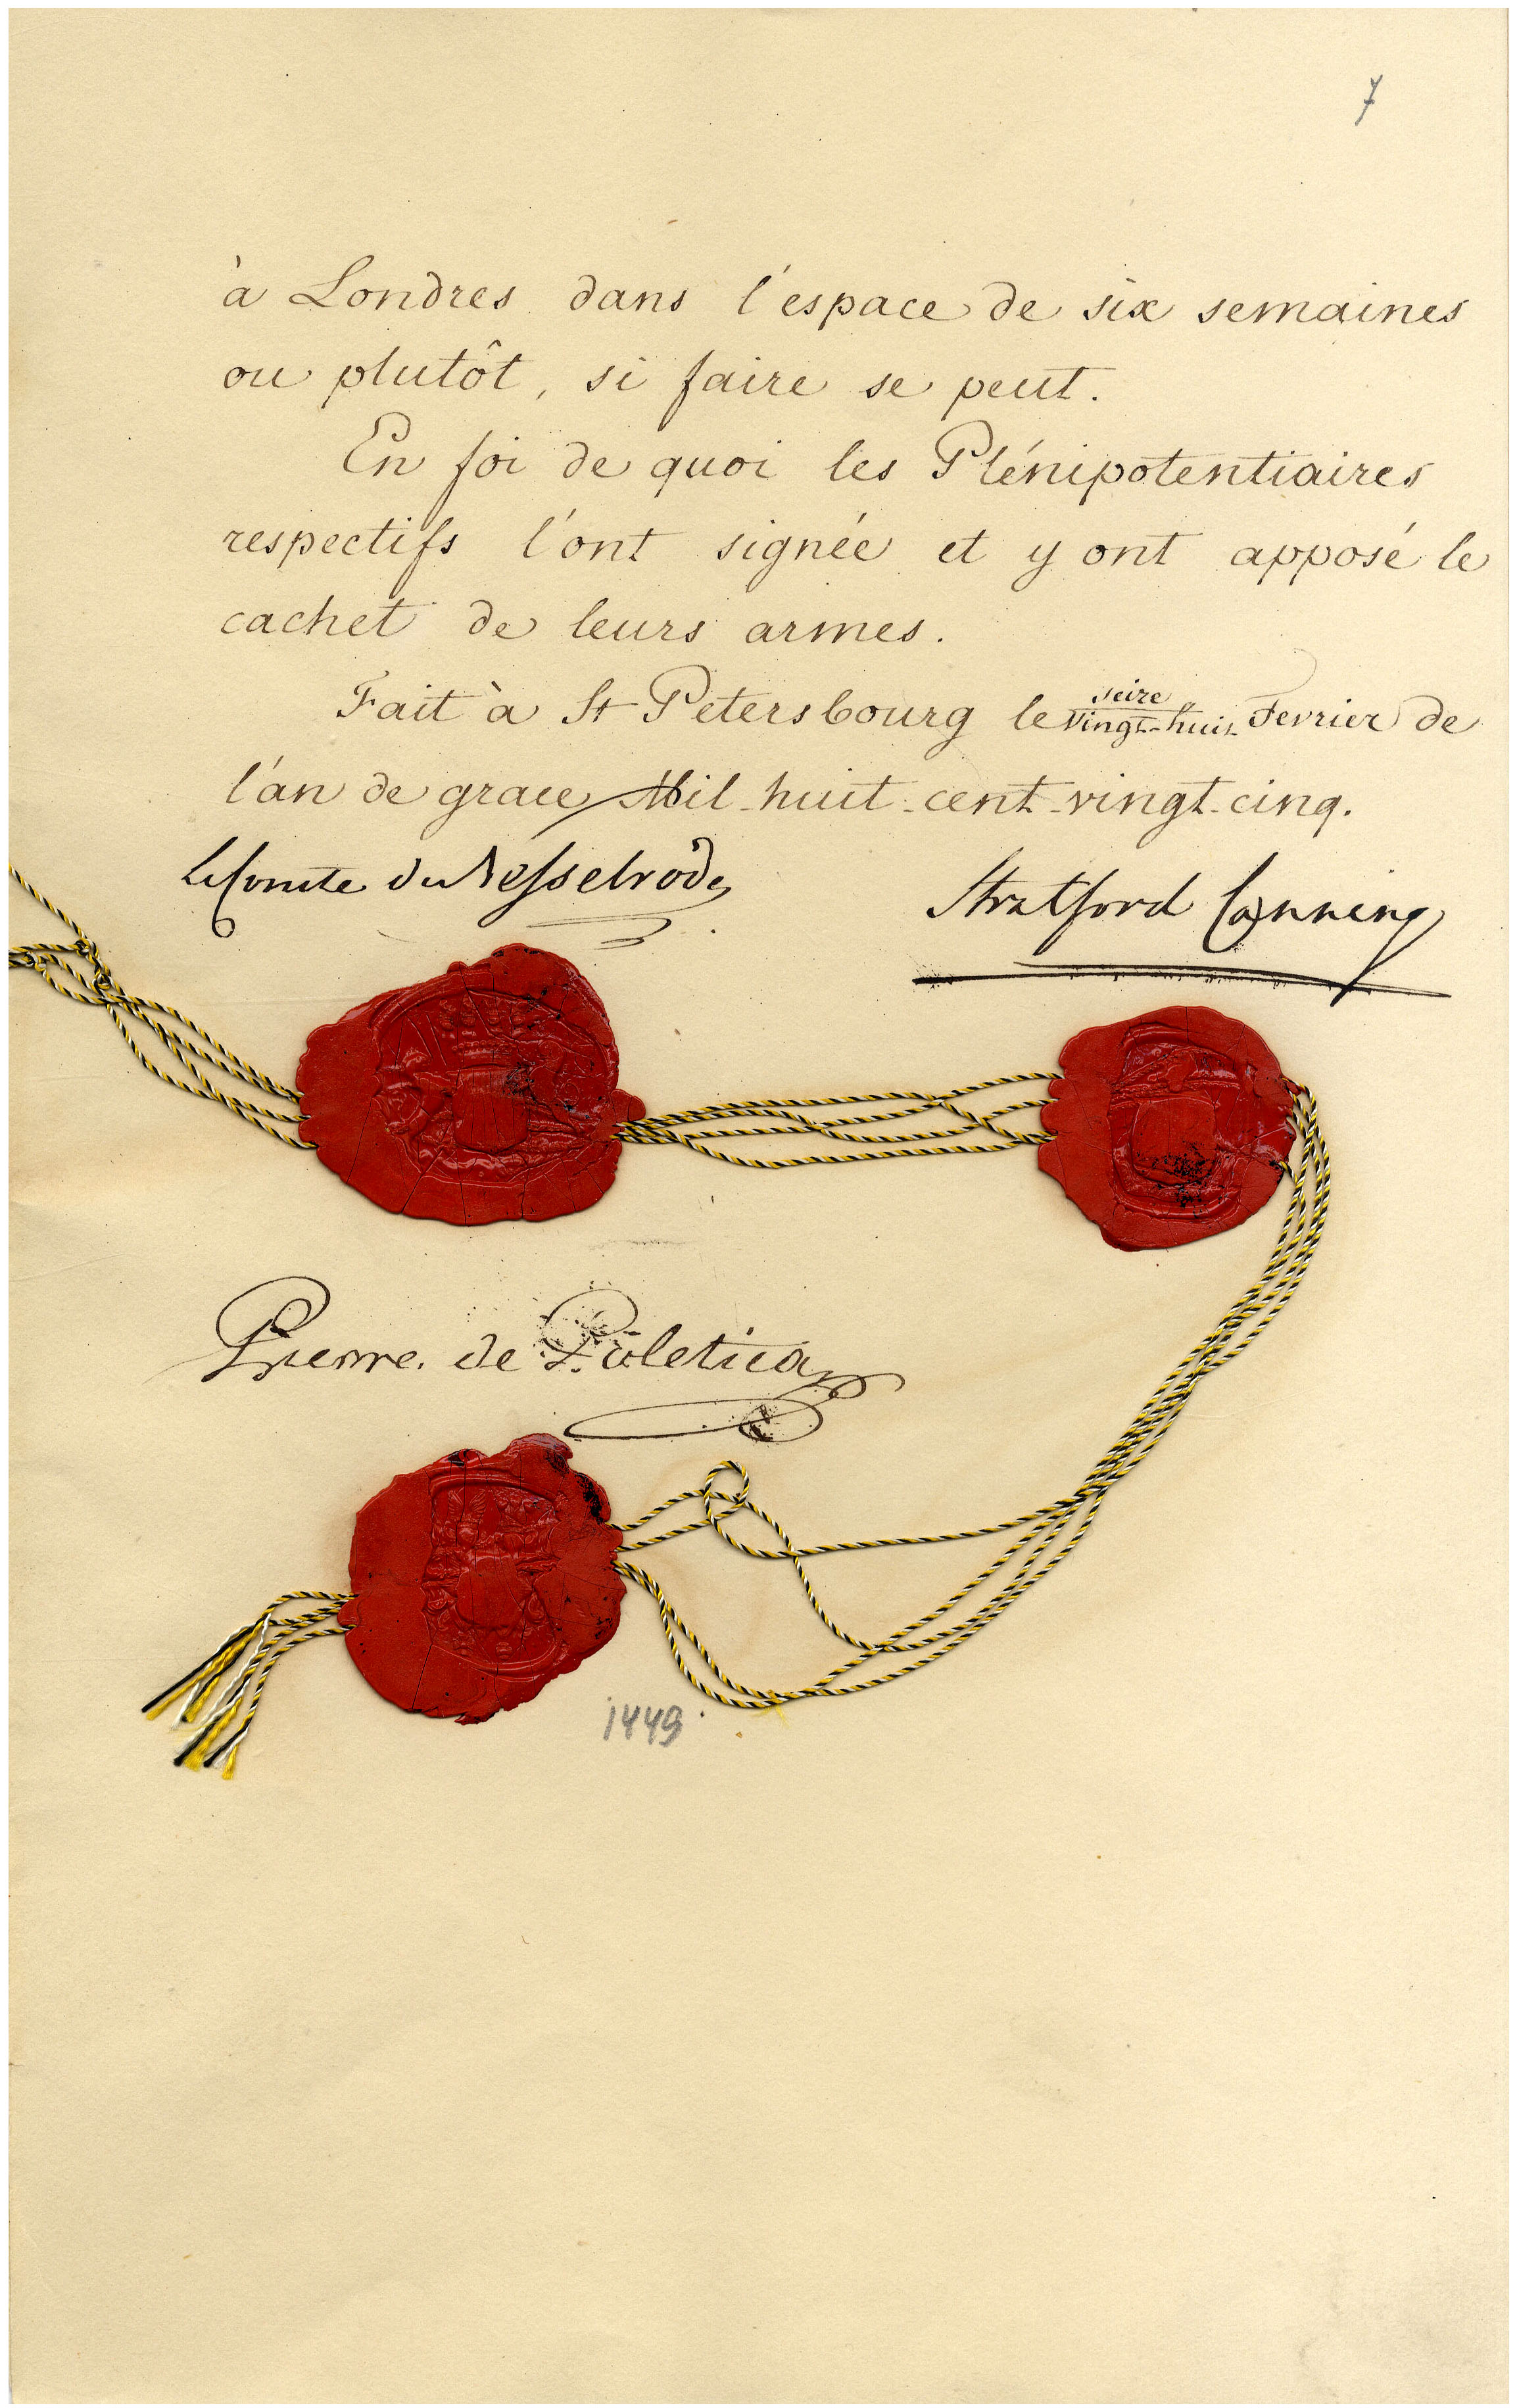 7
à Londres dans l'espace de six semaines
ou plutôt, si faire se peut.
En foi de quoi les Plénipotentiaires
respectifs l'ont signée et y ont apposé le
cachet de leurs armes.
Fait à St Petersbourg le seize / vingt-huit Fevrier de
l'an de grace Mil-huit-cent-vingt-cinq.
Le Comte de Nesselrode
Stratford Canning
Pierre de Poletica
1449